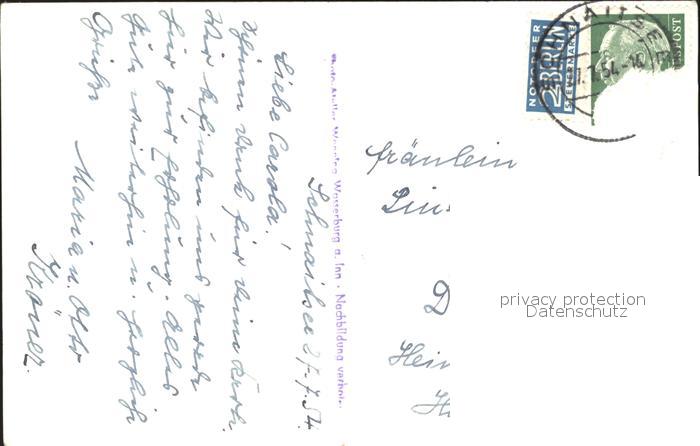 Schnaitsee 27.7.54.
Liebe Carola!
Schönen Dank für Deine Karte.
Wir befinden uns gerade
hier zur Erholung. Alles
Gute weiterhin u. herzliche
Grüße
Maria u. Otto
Photo-Atelier Wasserburg a. Inn - Nachbildung verboten
Fräulein
Lin
D
Hein
H
NOTOPFER
2 BERLIN
STEUERMARKE
SCHNAITSEE
7.54-10
POST
privacy protection
Datenschutz